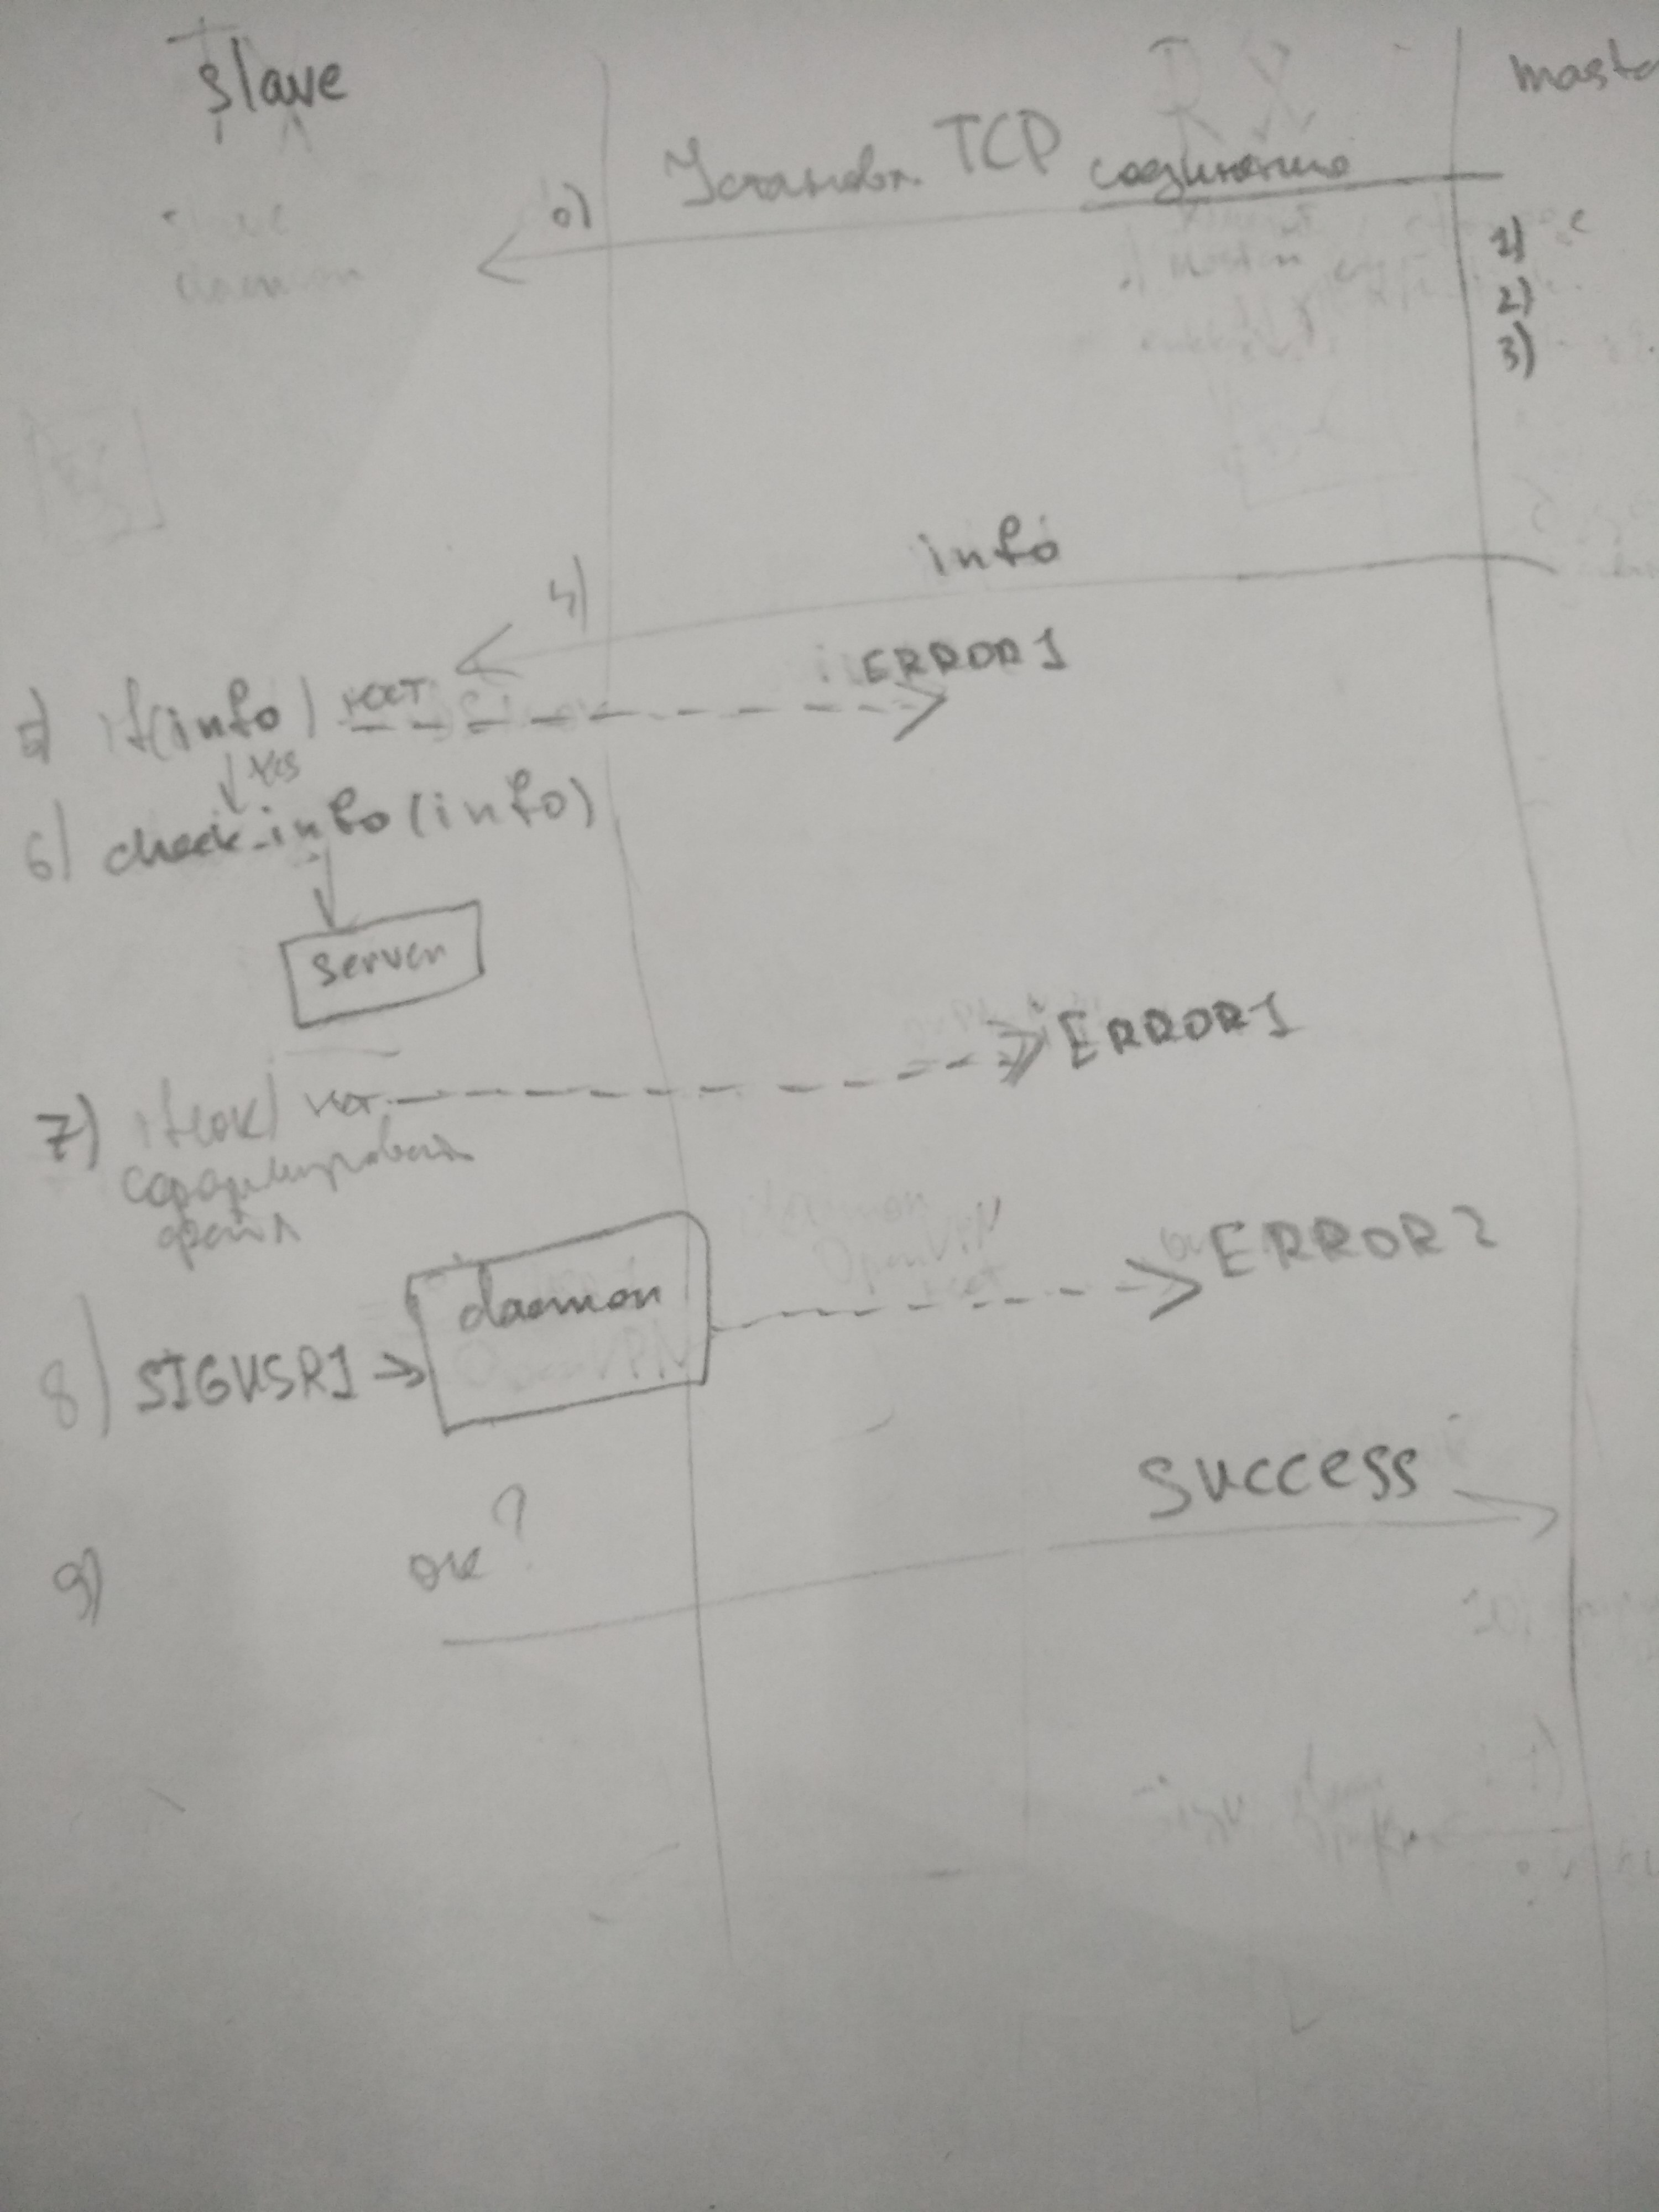 slave
master
0) Установл. TCP соединение
1)
2)
3)
4) info
5) if(info) нет ERROR1
yes
6) check_info(info)
server
7) if(ok) нет ERROR1
сформировать
файл
8) SIGUSR1 daemon ERROR2
OpenVPN
9) ок? success